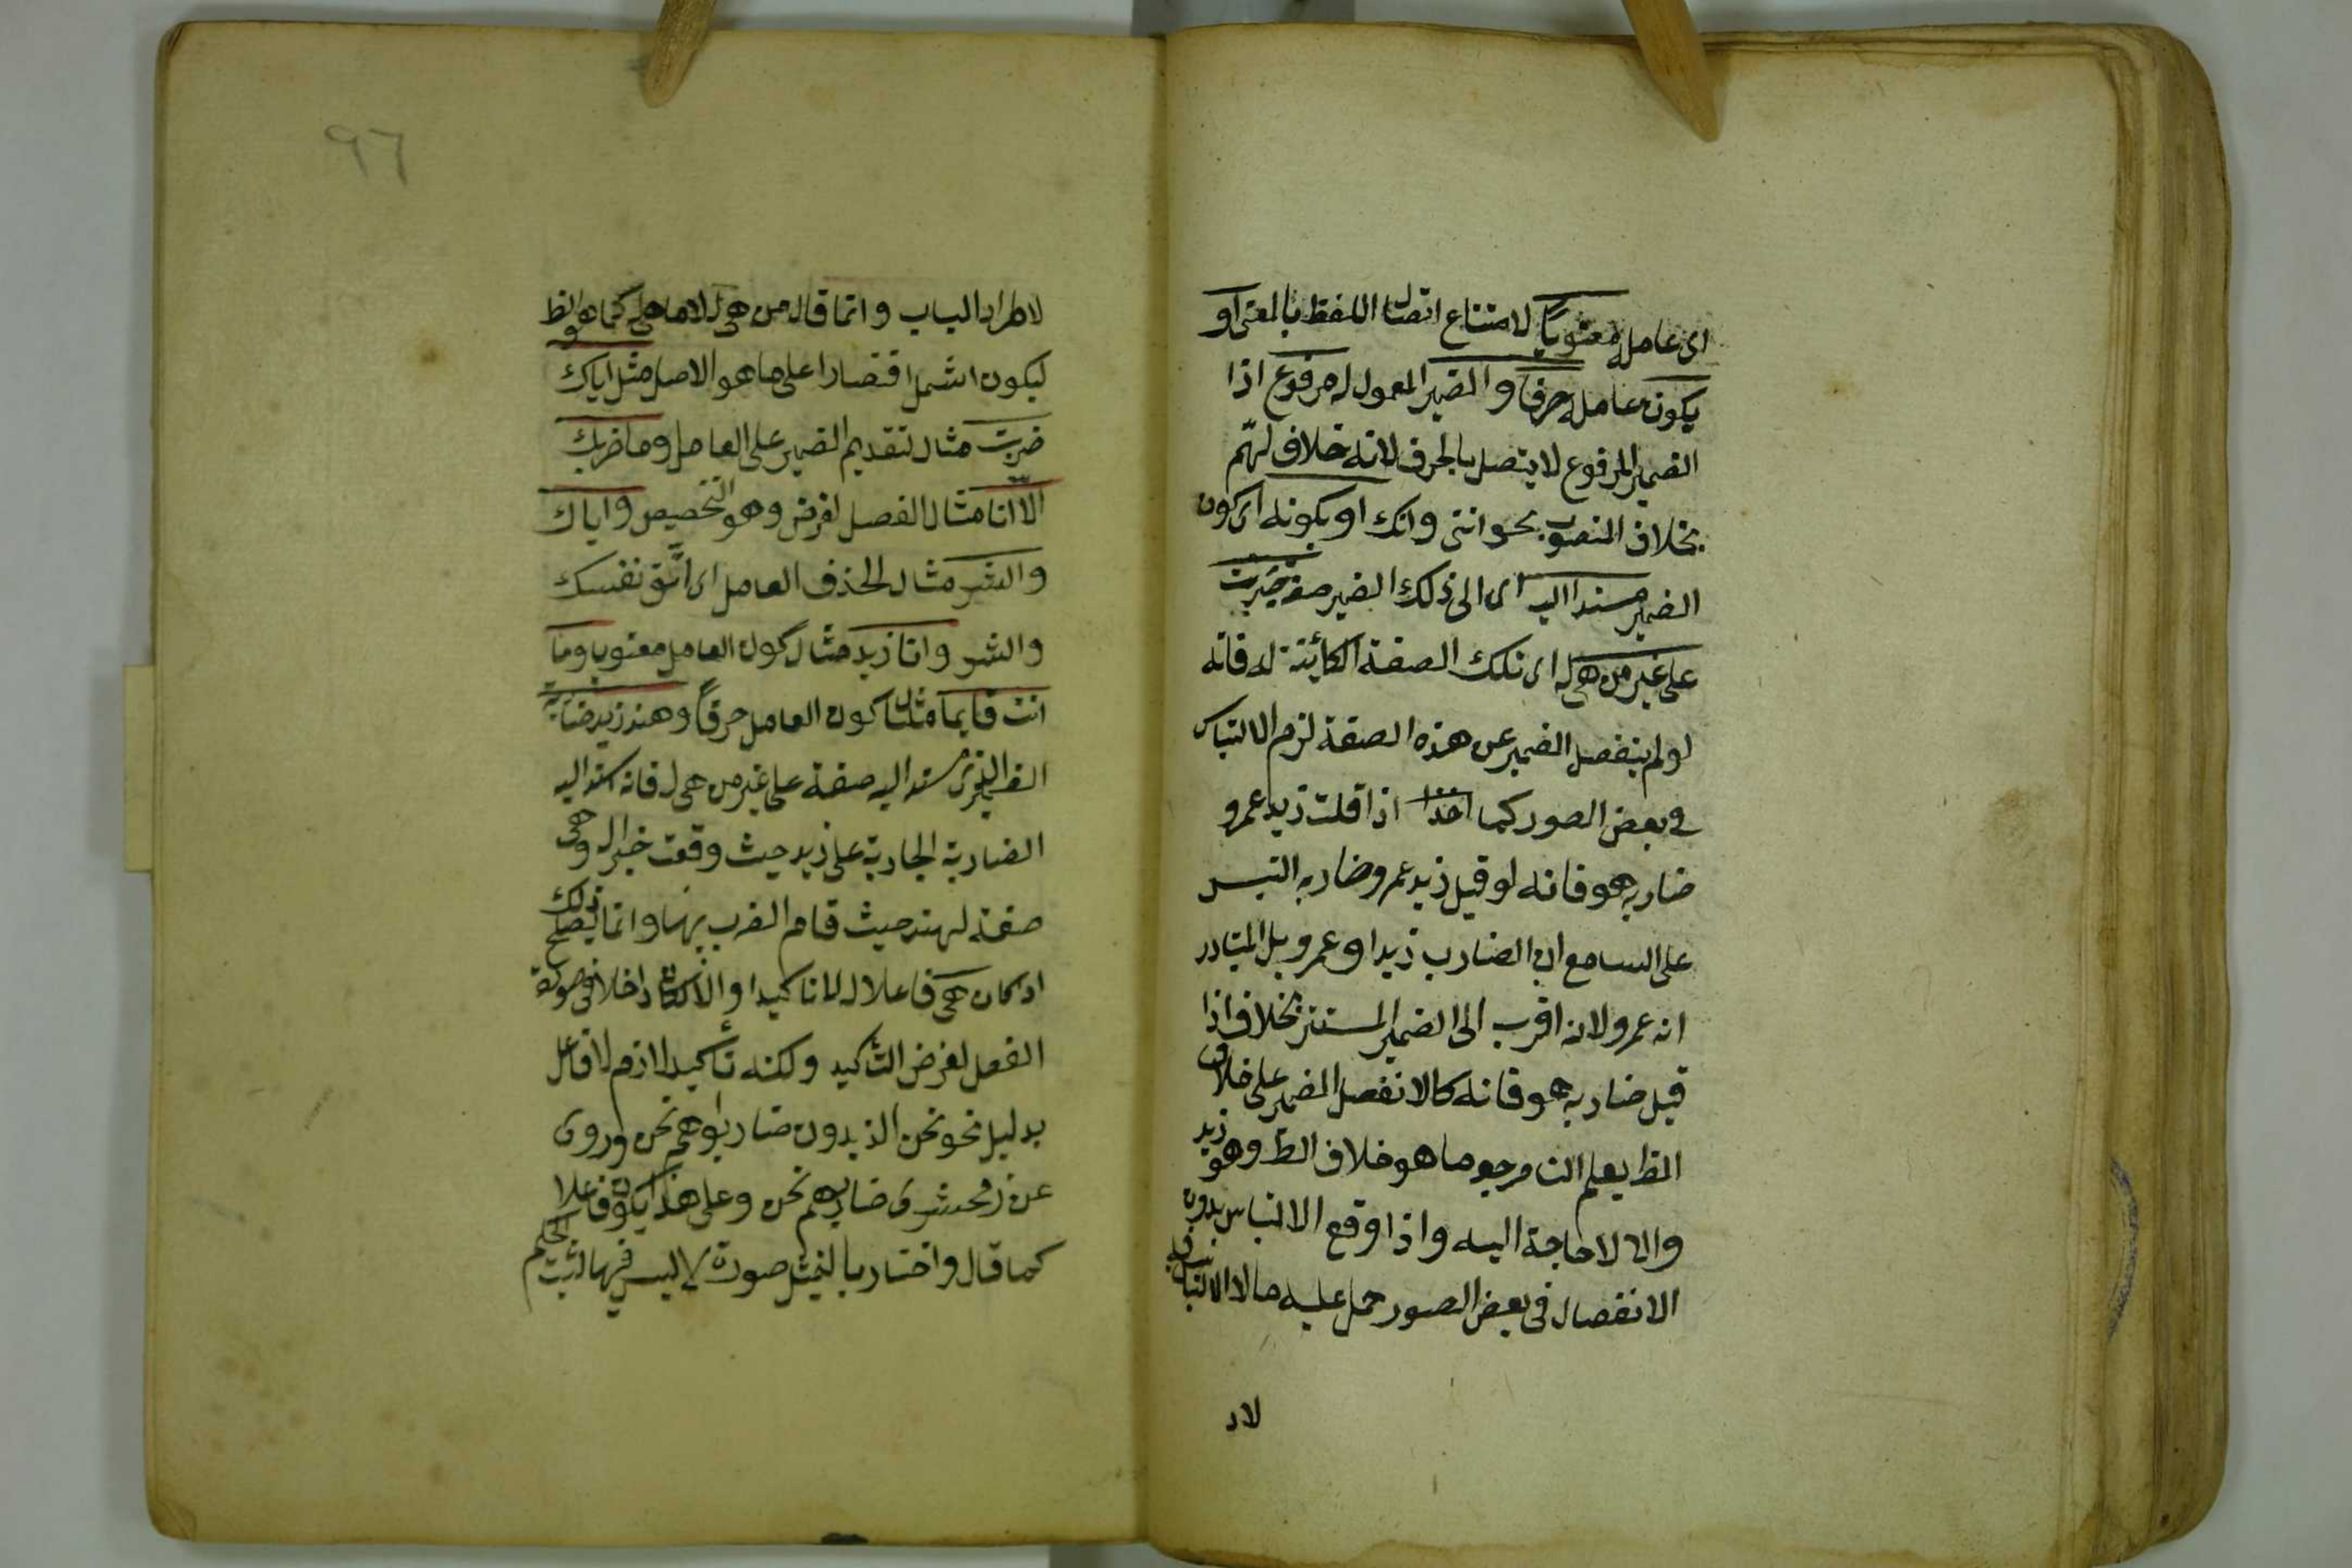 اى عامله معنويًا لامتناع اتصال اللفظ بالمعنى او
يكون عامله حرفًا والضمير المعمول له مرفوع اذا
الضمير المرفوع لا يتصل بالحرف لانه خلاف لغتهم
بخلاف المنصوب نحو اننى وانك او بكونه اى كون
الضمير مسندا اليه اى الى ذلك الضمير صفة جرت
على غير من هى له اى تلك الصفة الكائنة له فانه
لو لم ينفصل الضمير عن هذه الصفة لزم الالتباس
فى بعض الصور كما اذا قلت زيد عمرو
ضاربه هو فانه لو قيل زيد عمرو ضاربه التبس
على السامع ان الضارب زيد او عمرو بل المتبادر
انه عمرو لانه اقرب الى الضمير المستتر بخلاف اذا
قيل ضاربه هو فانه كا لانفصل الضمير على خلاف
الظ يعلم ان مرجعه ما هو خلاف الظ وهو زيد
والا لا حاجة اليه واذا وقع الالتباس بدون
الانفصال فى بعض الصور حمل عليه ما لا التباس فيه
لاد
٩٦
لاطراد الباب وانما قال من هى له لا ما هى له كما هو الظ
ليكون اشمل اقتصارا على ما هو الاصل مثل اياك
ضربت مثال لتقديم الضمير على العامل وما ضربك
الا انا مثال الفصل لغرض وهو التخصيص واياك
والشر مثال لحذف العامل اى اتق نفسك
والشر وانا زيد مثال لكون العامل معنويا وما
انت قايما مثال كون العامل حرفًا وهند زيد ضاربته
الضمير الذى اسند اليه صفة على غير من هى له فانه اسند اليه
الضاربة الجارية على زيد حيث وقعت خبرا له وهى
صفة لهند حيث قام الضرب بها وانما يصلح ذلك
اذ كان هى فاعلا له لا تاكيدا والا لكان داخلا فى صورة
الفصل لغرض التأكيد ولكنه تأكيد لازم لا فاعل
بدليل نحو نحن الزيدون ضاربوهم نحن وروى
عن زمخشرى ضاربهم نحن وعلى هذا يكون فاعلا
كما قال واختار بالتمثيل صورة لا لبس فيها ليثبت الحكم